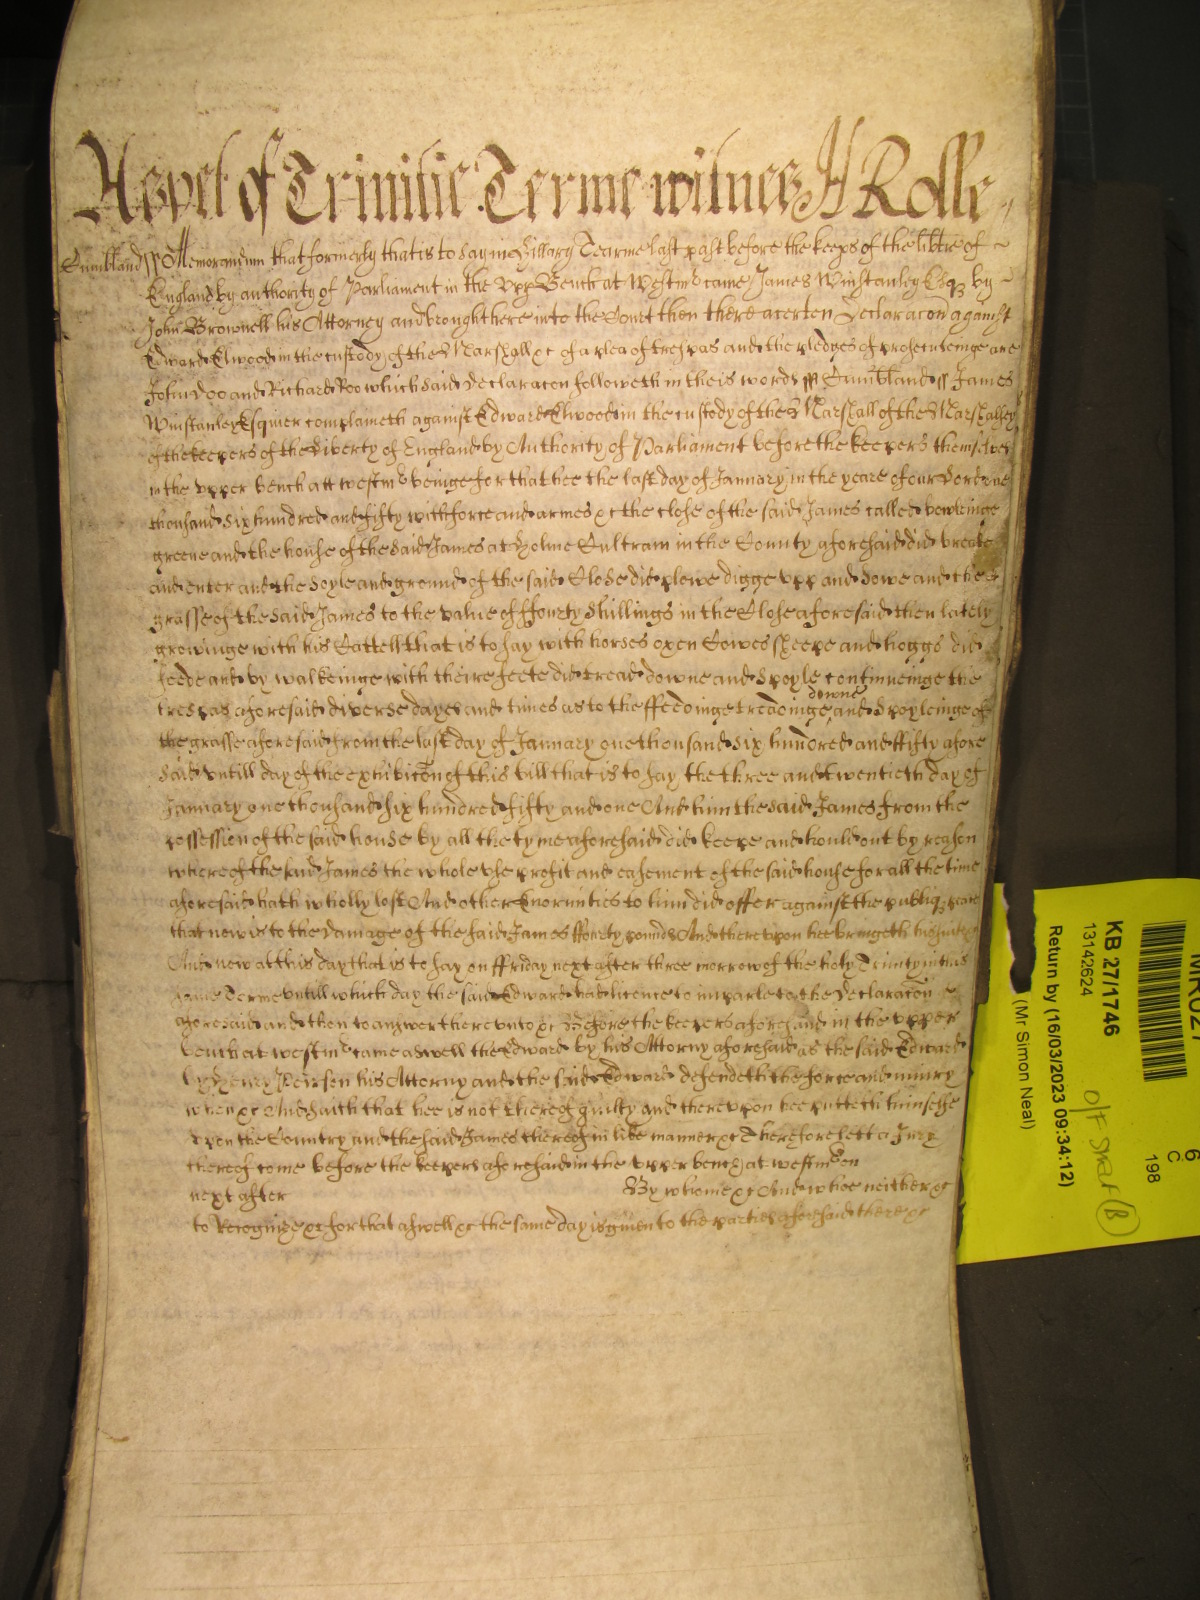 As yet of Trinitie Terme witnes H Rolle
Cumbland ss Memorandum that formerly that is to say in Hillary Tearme last past before the keeps of the libtie of
England by authority of Parliament in the Upp Bench at Westmr came James Winstanley Esqr by
John Brownell his Attorney and brought here into the Court then there a certen Declaracon against
Edward Elwood in the custody of the Marshall &c of a plea of trespas and the pledges of prosecuteinge are
John Doo and Richard Roo which said Declaracon followeth in theis words ss Cumbland ss James
Winstanley Esquier complaineth against Edward Elwood in the custody of the Marshall of the Marshalsey
of the keepers of the Liberty of England by Authority of Parliament before the keepers themselves
in the upper bench att westmr beinge for that hee the last day of January in the yeare of our Lord one
thousand six hundred and fifty with force and armes &c the close of the said James called bowleinge
greene and the house of the said James at Holme Cultram in the County aforesaid did breake
and enter and the soyle and ground of the said Close did plowe digge upp and sowe and the
grasse of the said James to the value of ffourty shillings in the Close aforesaid then lately
growinge with his Cattell that is to say with horses oxen Cowes sheepe and hoggs did
feede and by walkeinge with theire feete did tread downe and spoyle continueinge the
trespas aforesaid diverse dayes and times as to the ffeedinge treadinge downe and spoyleinge of
the grasse aforesaid from the last day of January one thousand six hundred and ffifty afore
said untill day of the exhibicon of this bill that is to say the three and twentieth day of
January one thousand six hundred fifty and one And him the said James from the
possession of the said house by all the tyme aforesaid did keepe and hould out by reason
whereof the said James the whole use profit and easement of the said house for all the time
aforesaid hath wholly lost And other Enormities to him did offer against the publiq peace
that now is to the damage of the said James ffourty pounds And thereupon hee bringeth his suite
And now at this day that is to say on ffriday next after three morrow of the holy Trinity in this
same Terme untill which day the said Edward had licence to imparle to the Declaracon
aforesaid and then to answer thereunto &c Before the keepers aforesaid in the upper
bench at westmr came aswell the Edward by his Attorny aforesaid as the said Edward
by Henry his Attorny and the said Edward defendeth the force and iniury
when &c And saith that hee is not thereof guilty and thereupon hee putteth himselfe
upon the Country and the said James thereof in like manner &c Therefore lett a Jury
thereof come before the keepers aforesaid in the upper bench at westmr on
next after By whome &c And whoe neither &c
to Recognize &c for that aswell &c the same day is given to the parties aforesaid there &c
6
C
198
KB 27/1746
13142624
Return by (16/03/2023 09:34:12)
(Mr Simon Neal)